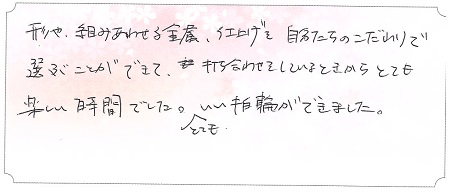 形や、組みあわせる金属、仕上げを自分たちのこだわりで
選ぶことができて、打ち合わせをしているときからとても
楽しい時間でした。とてもいい指輪ができました。